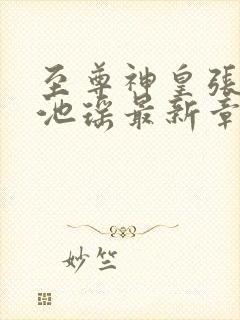 至尊神皇張
池瑤最新章
妙竺